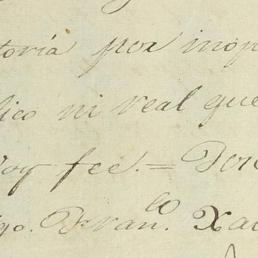 toria por inop
lico ni real que
oy fee. = Jose
go. Fran.co Xav